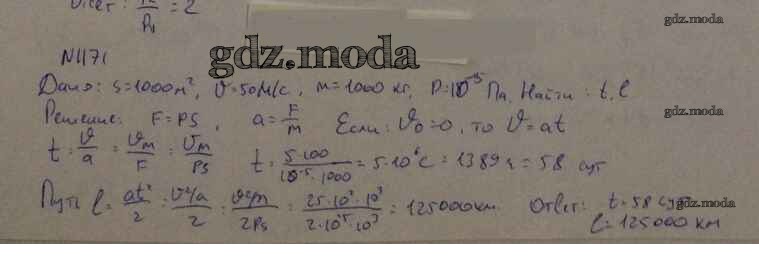 Ответ: P₂/P₁ = 2
gdz.moda
N1171
gdz.moda
Дано: S=1000м², υ=50м/с, m=1000 кг, P=10⁻⁵ Па. Найти: t, l
Решение: F=PS, a=F/m Если υ₀=0, то υ=at
gdz.moda
t = υ/a = υm/F = υm/PS t = 5·100/10⁻⁵·1000 = 5·10⁶с = 1389 ч = 58 сут
Путь l = at²/2 = υ²/a/2 = υ²m/2PS = 25·10²·10³/2·10⁻⁵·10³ = 125000км. Ответ: t=58 сут
gdz.moda
l=125000 км